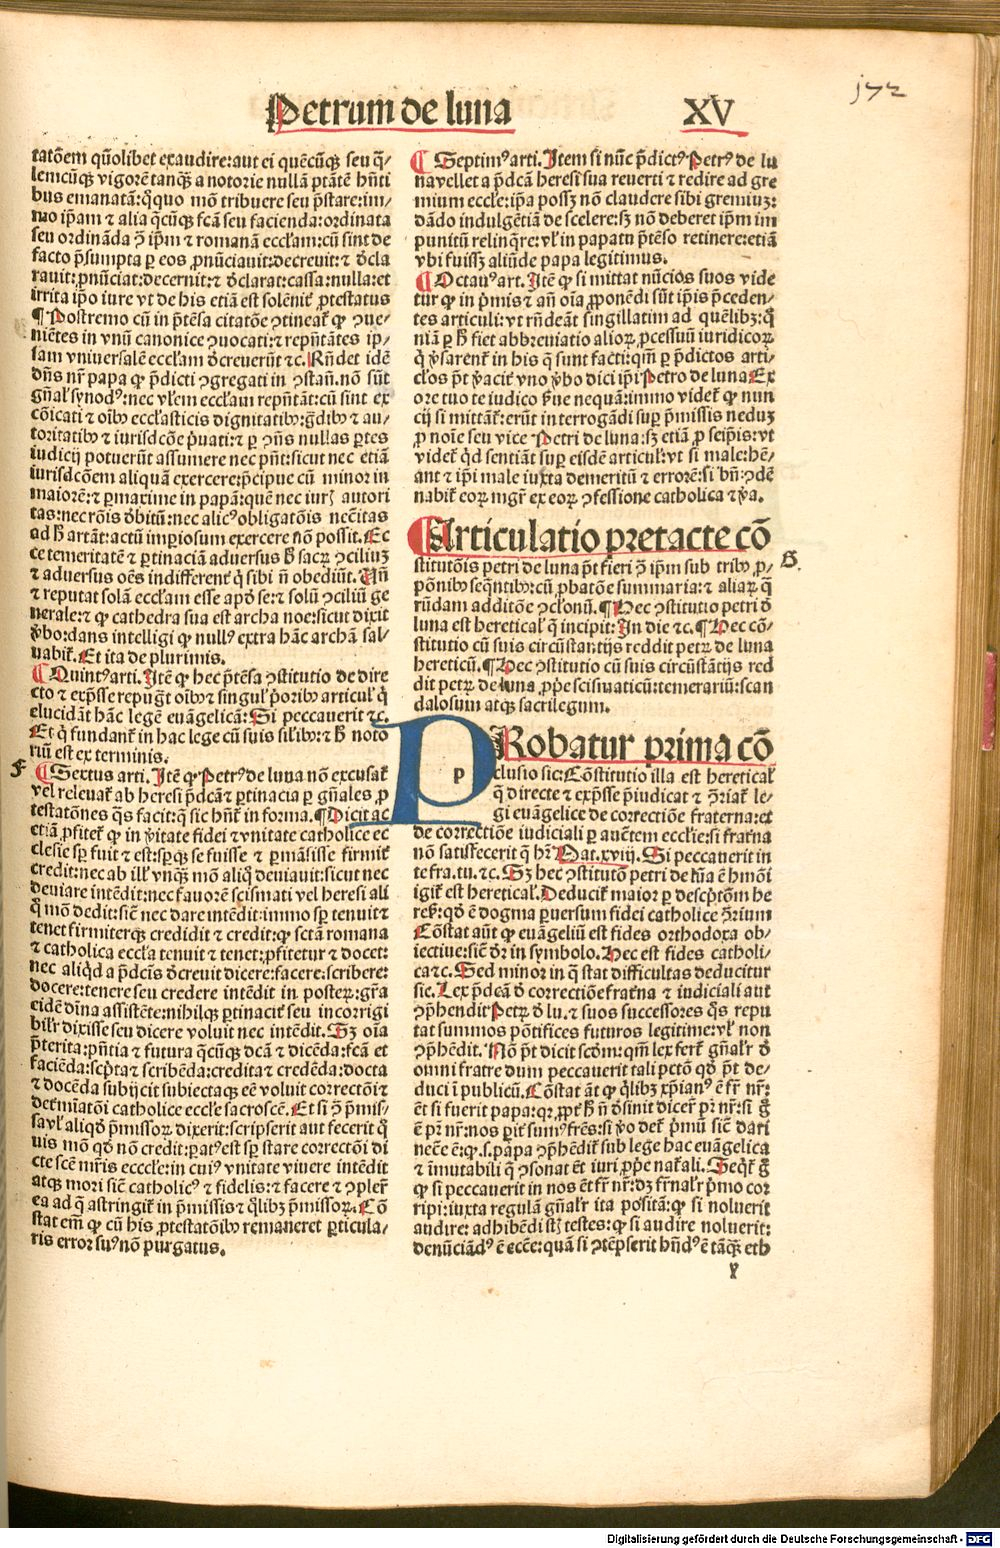 Petrum de luna
XV
172
tatōem qn̄olibet exaudire: aut ei quēcūq̄ seu q̄/
lemcūq̄ vigorē tanq̄ȝ a notorie nullā ptātē hn̄ti
bus emanatā: q̄quo mō tribuere seu p̄stare: im/
mo ip̄am ⁊ alia q̄cūq̄ȝ fcā seu facienda: ordinata
seu ordināda ꝯ̄ ip̄m ⁊ romanā eccl̄am: cū sint de
facto p̄sumpta ꝑ eos ꝓnūciauit: decreuit: ⁊ ꝺcla
rauit: ꝓnūciat: decernit: ⁊ ꝺclarat: cassa: nulla: et
irrita ip̄o iure vt de his etiā est solēnit̄ ꝓtestatus
¶ Postremo cū in p̄tēsa citatōe ꝯtineat̄ ꝙ ꝯue/
niētes in vnū canonice ꝯuocati: ⁊ rep̄ntātes ip/
sam vniuersalē eccl̄am ꝺcreuerūt ⁊c. Rn̄det idē
dn̄s nr̄ papa ꝙ p̄dicti ꝯgregati in ꝯstan̄. nō sūt
gn̄al̓ synodꝰ: nec vl̓em eccl̄am rep̄ntāt: cū sint ex
cōicati ⁊ oībꝰ eccl̄asticis dignitatibꝰ: g̈dibꝰ ⁊ au/
toritatibꝰ ⁊ iurisdcōe p̄uati: ⁊ ꝑ ꝯn̄s nullas ꝑtes
iudicij potuerūt assumere nec pn̄t: sicut nec etiā
iurisdcōem aliquā exercere: p̄cipue cū minor in
maiorē: ⁊ ꝑmaxime in papā: quē nec iurꝭ autori
tas: nec rōis ꝺbitū: nec alicꝰ obligatōis nec̄itas
ad ħ artāt: actū imꝑiosum exercere nō possit. Ec
ce temeritatē ⁊ ꝑtinaciā aduersus ħ sacꝝ ꝯciliuȝ
⁊ aduersus oēs indifferent̄ q̇ sibi n̄ obediūt. Nā
⁊ reputat solā eccl̄am esse apꝺ se: ⁊ solū ꝯciliū ge
nerale: ⁊ ꝙ cathedra sua est archa noe: sicut dixit
v̄bo: dans intelligi ꝙ nullꝰ extra hāc archā sal/
uabit̄. Et ita de plurimis.
¶ Quintꝰ arti. Itē ꝙ hec p̄tēsa ꝯstitutio de dire
cto ⁊ exp̄sse repugt̄ oībꝰ ⁊ singul̓ p̄oribꝰ articul̓ q̇
elucidāt hāc legē euāgelicā: Si peccauerit ⁊c.
Et q̇ fundant̄ in hac lege cū suis sil̓ibꝰ: ⁊ ħ noto
riū est ex terminis.
F
¶ Sextus arti. Itē ꝙ Petrꝰ de luna nō excusat̄
vel releuat̄ ab heresi p̄dcā ⁊ ꝑtinacia ꝑ gn̄ales ꝓ
testatōnes q̄s facit: q̄ sic hn̄t̄ in forma. ¶ Dicit ac
etiā ꝓfitet̄ ꝙ in v̄itate fidei ⁊ vnitate catholice ec
clesie sꝑ fuit ⁊ est: sꝑqȝ se fuisse ⁊ ꝑmāsisse firmit̄
credit: nec ab ill̓ vnq̄ȝ mō aliq̊ deuiauit: sicut nec
deuiare intēdit: nec fauorē scismati vel heresi ali
q̊ mō dedit: sic̄ nec dare intēdit: immo sꝑ tenuit ⁊
tenet firmiterqȝ credidit ⁊ credit: ꝙ sctā romana
⁊ catholica eccl̄a tenuit ⁊ tenet: ꝓfitetur ⁊ docet:
nec aliq̇d a p̄dcīs ꝺcreuit dicere: facere: scribere:
docere: tenere seu credere intēdit in posteꝝ: gr̄a
eidē dīna assistēte: nihilqȝ ꝑtinacit̄ seu incorrigi
bilr̄ dixisse seu dicere voluit nec intēdit. Sȝ oīa
p̄terita: pn̄tia ⁊ futura q̄cūqȝ dcā ⁊ dicēda: fcā et
faciēda: scp̄ta ⁊ scribēda: credita ⁊ credēda: docta
⁊ docēda subijcit subiectaqȝ eē voluit correctōi ⁊
det̄mīatōi catholice eccl̄e sacroscē. Et si ꝯ̄ p̄mis/
sa vl̓ aliq̇d p̄missoꝝ dixerit: scripserit aut fecerit q̊
uis mō qꝺ nō credit: ꝑatꝰ est sꝑ stare correctōi di
cte scē mr̄is ecccl̄e: in cuiꝰ vnitate viuere intēdit
atqȝ mori sic̄ catholicꝰ ⁊ fidelis: ⁊ facere ⁊ ꝯpler̄
ea ad q̄ astringit̄ in p̄missis ⁊ q̊libȝ p̄missoꝝ. Cō
stat em̄ ꝙ cū his ꝓtestatōibꝰ remaneret ꝑticula/
ris error suꝰ nō purgatus.
¶ Septimꝰ arti. Item si nūc p̄dictꝰ Petrꝰ de lu
na vellet a p̄dcā heresi sua reuerti ⁊ redire ad gre
mium eccl̄e: ip̄a possȝ nō claudere sibi gremiuȝ:
dādo indulgētiā de scelere: sȝ nō deberet ip̄m im
punitū relinq̄re: vl̓ in papatu p̄tēso retinere: etiā
vbi fuissȝ aliūde papa legitimus.
¶ Octauꝰ art. Itē ꝙ si mittat nūcios suos vide
tur ꝙ in p̄mis ⁊ an̄ oīa ꝓponēdi sūt ip̄is p̄ceden/
tes articuli: vt rn̄deāt singillatim ad quēlibȝ: q̄
niā ꝑ ħ fiet abbreuiatio alioꝝ ꝓcessuū iuridicoꝝ
q̇ v̄sarent̄ in his q̄ sunt facti: qm̄ ꝑ p̄dictos arti/
cl̓os p̄t v̄acit̄ vno v̄bo dici ip̄i Petro de luna. Ex
ore tuo te iudico ẜue nequā: immo videt̄ ꝙ nun
cij si mittant̄: erūt interrogādi suꝑ p̄missis neduȝ
ꝓ noīe seu vice Petri de luna: sȝ etiā ꝓ seip̄is: vt
videt̄ qꝺ sentiāt suꝑ eisdē articul̓: vt si male: hē/
ant ⁊ ip̄i male iuxta demeritū ⁊ errorē: si bn̄: ꝯdē
nabit̄ eoꝝ mgr̄ ex eoꝝ ꝯfessione catholica ⁊ v̄a.
¶ Articulatio pretacte cō
stitutōis petri de luna p̄t fieri ꝯ̄ ip̄m sub tribꝰ ꝓ/
pōnibꝰ seq̄ntibꝰ: cū ꝓbatōe summaria: ⁊ aliaꝝ q̄
G.
rūdam additōe ꝯclonū. ¶ Hec ꝯstitutio petri ꝺ
luna est hereticaľ q̄ incipit: In die ⁊c. ¶ Hec cō/
stitutio cū suis circūstantijs reddit petꝝ de luna
hereticū. ¶ Hec ꝯstitutio cū suis circūstātijs red
dit petꝝ de luna ꝓp̄e scismaticū: temerariū: scan
dalosum atqȝ sacrilegum.
PRobatur prima cō
clusio sic: Cōstitutio illa est hereticaľ
q̄ directe ⁊ exp̄sse p̄iudicat ⁊ ꝯ̄riat̄ le/
gi euāgelice de correctiōe fraterna: et
de correctiōe iudiciali ꝑ auētem eccl̄ie: si frat̄na
nō satisfecerit q̄ hr̄ Mat. xviij. Si peccauerit in
te fra. tu. ⁊c. Sȝ hec ꝯstitutō petri de lūa ē hmōi
igit̄ est hereticaľ. Deducit̄ maior ꝑ descp̄tōm he
ret̄: qꝺ ē dogma ꝑuersum fidei catholice ꝯ̄rium
Cōstat aūt ꝙ euāgeliū est fides orthodoxa ob/
iectiue: sic̄ ꝺr in symbolo. Hec est fides catholi/
ca ⁊c. Sed minor in q̄ stat difficultas deducitur
sic. Lex p̄dcā ꝺ correctiōe frat̄na ⁊ iudiciali aut̄
ꝯp̄hendit Petꝝ ꝺ lu. ⁊ suos successores q̄s repu
tat summos pōtifices futuros legitime: vl̓ non
ꝯp̄hēdit. Nō p̄t dicit scꝺm: qm̄ lex fert̄ gn̄alr̄ ꝺ
omni fratre dum peccauerit tali pctō qꝺ p̄t de/
duci ī publicū. Cōstat āt ꝙ q̊libȝ xp̄ianꝰ ē fr̄ nr̄:
ēt si fuerit papa: qꝛ ꝓpt̄ ħ n̄ ꝺsinit dicer̄ pr̄ nr̄: si g̊
ē pr̄ nr̄: nos ꝑit̄ sumꝰ fr̄es: si v̄o det̄ p̄mū sic̄ dari
necē̄ ē: ꝙ. s. papa ꝯp̄hēdit̄ sub lege hac euāgelica
⁊ īmutabili q̄ ꝯsonat ēt iuri ꝓp̄e nat̄ali. Seqt̄ g̊
ꝙ si peccauerit in nos ēt fr̄ nr̄: dȝ fr̄nalr̄ p̄mo cor
ripi: iuxta regulā gn̄alr̄ ita positā: ꝙ si noluerit
audire: adhibēdi st̄ȝ testes: ꝙ si audire noluerit:
denūciādꝰ ē eccē: quā si ꝯtēpserit hn̄dꝰ ē tāqȝ eth
p
y
Digitalisierung gefördert durch die Deutsche Forschungsgemeinschaft - DFG